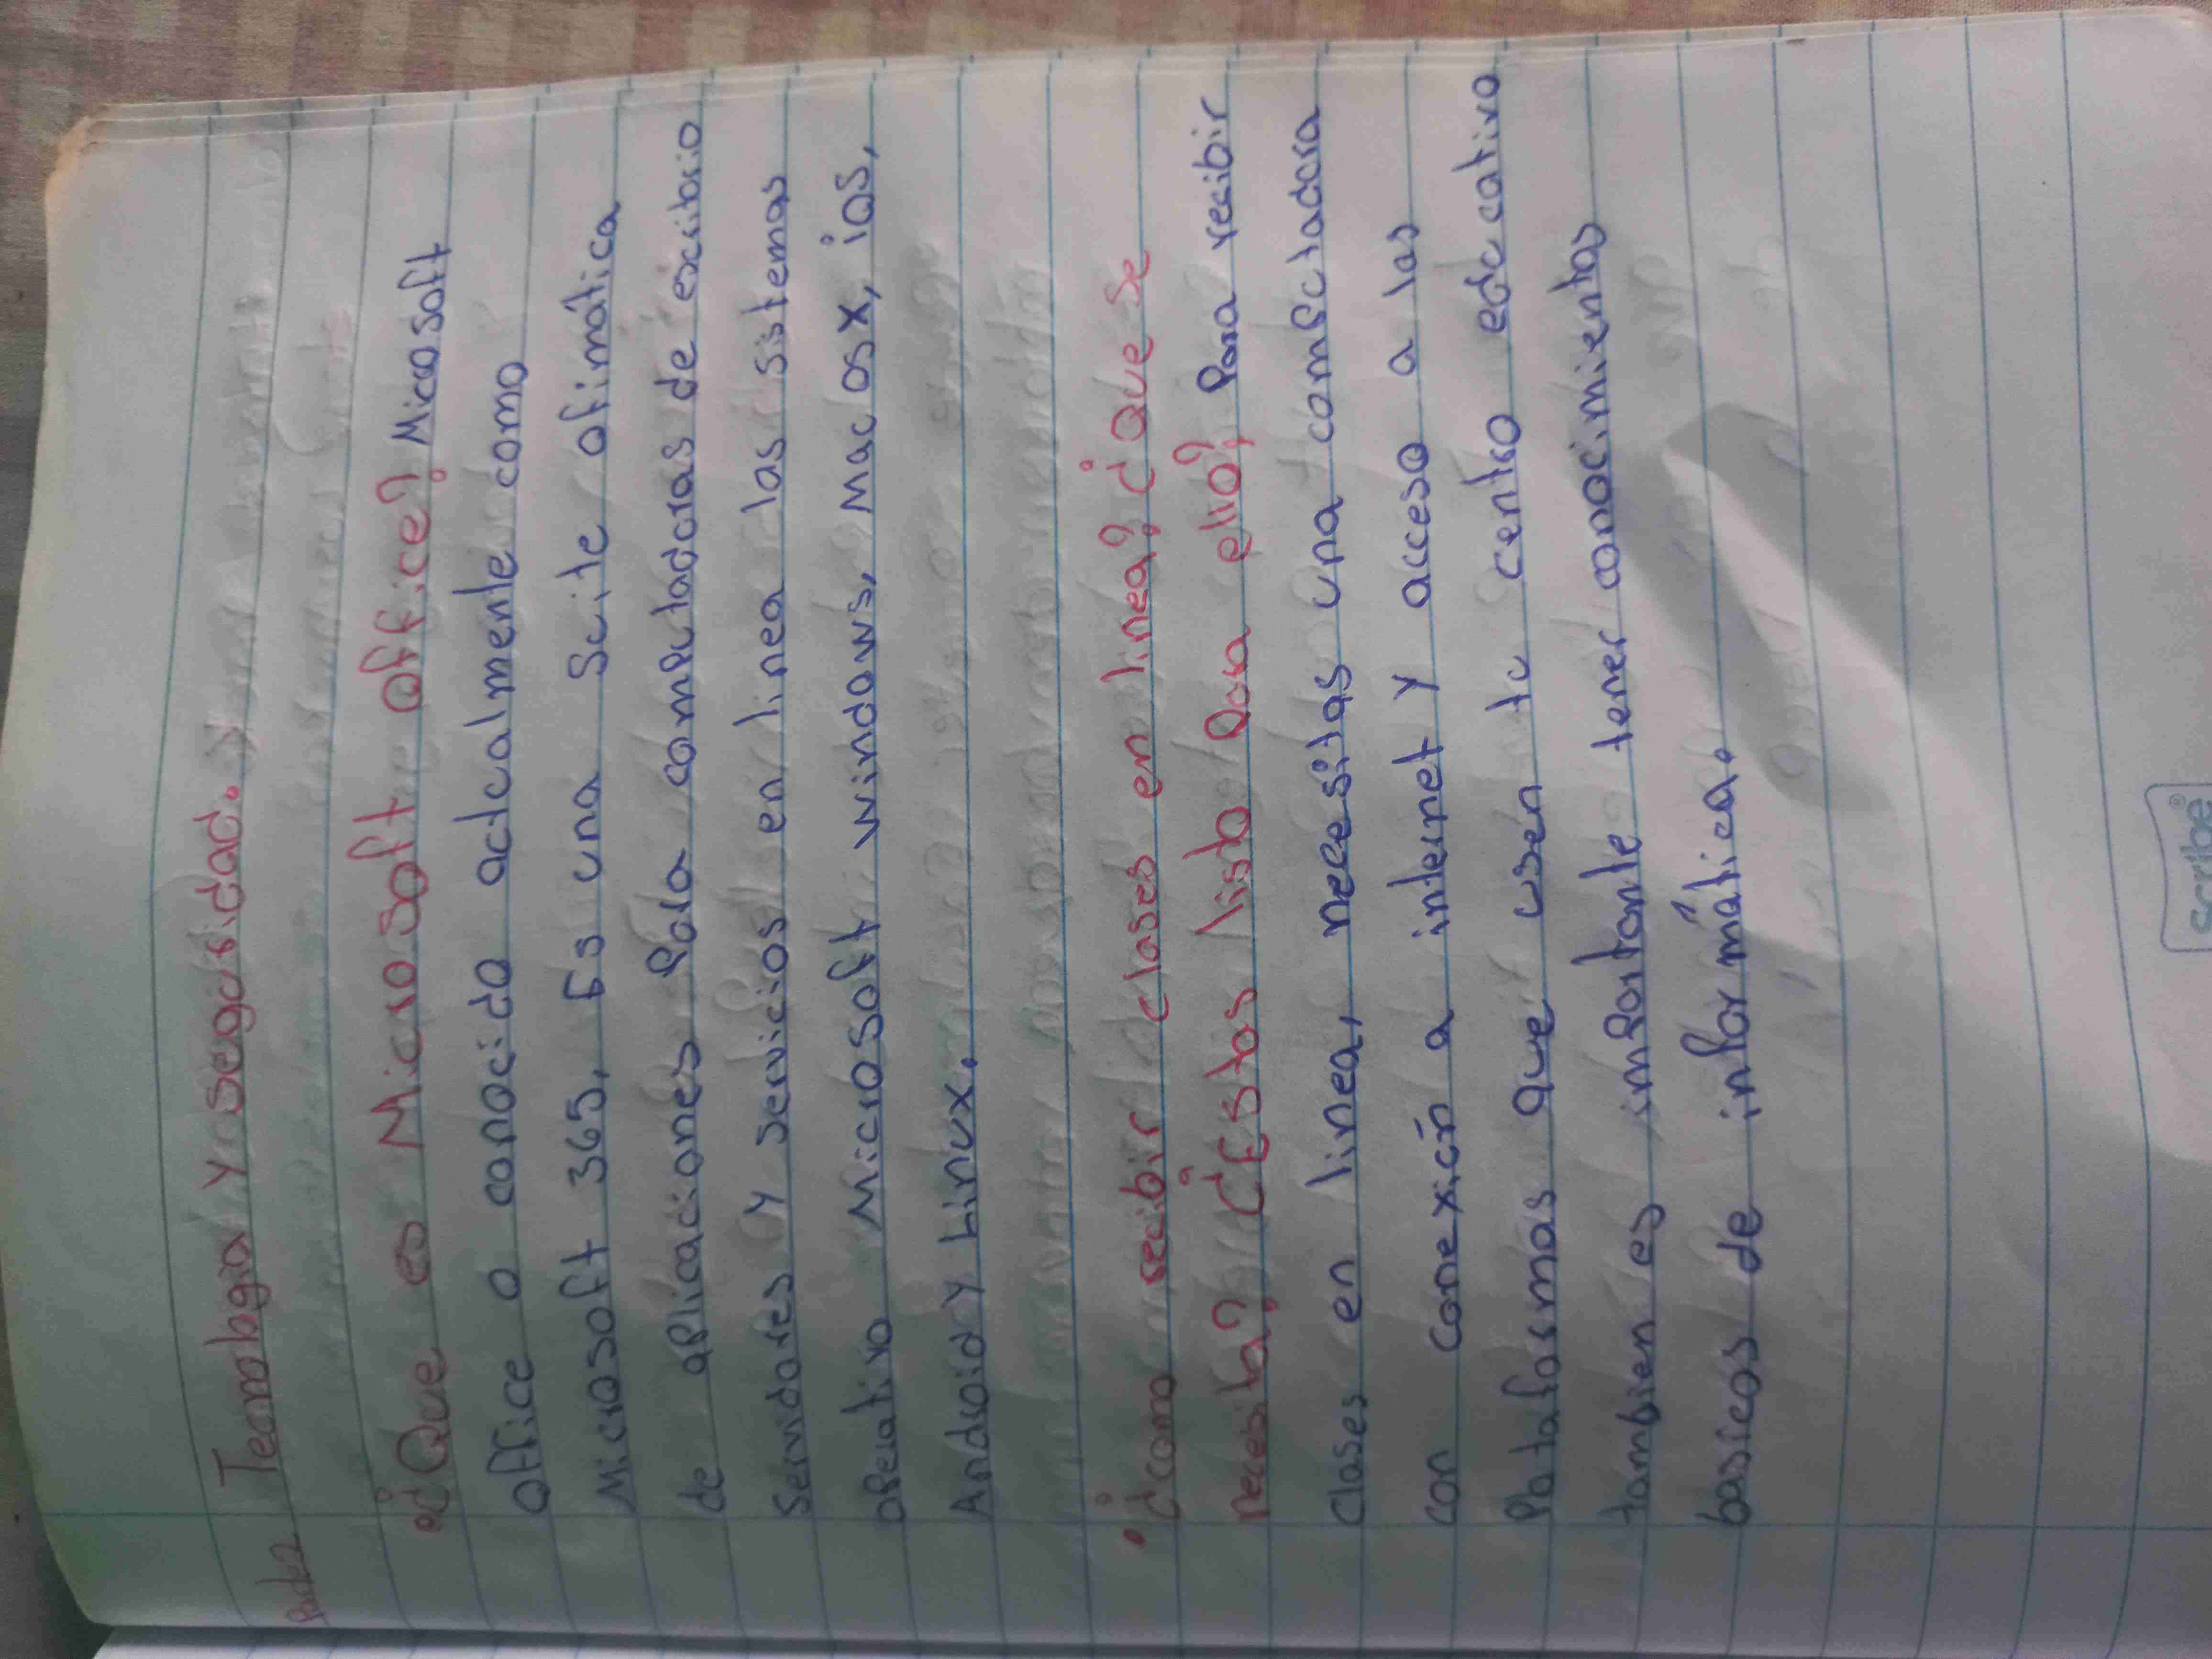 Parte 2
Tecnologia y seguridad.
¿Que es Microsoft office? Microsoft
office o conocido actualmente como
Microsoft 365, Es una Suite ofimática
de aplicaciones Para computadoras de escritorio
Servidores y servicios en linea las sistemas
operativo Microsoft windows, Mac os x, ios,
Android y Linux.
• ¿como recibir clases en linea? ¿que se
necesita? ¿Estas listo Para ello? Para recibir
clases en linea, necesitas una computadora
con conexión a internet y acceso a las
Plataformas que usen tu centro educativo
tambien es importante tener conocimientos
basicos de informática.
scribe®